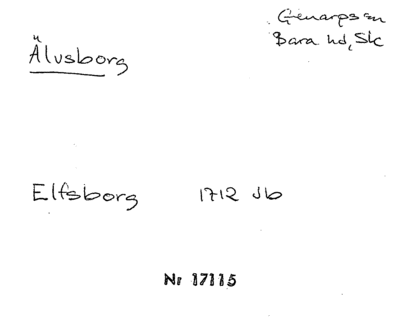 Genarps sn
Bara hd, Sk
Älvsborg
Elfsborg 1712 Jb
Nr 17115